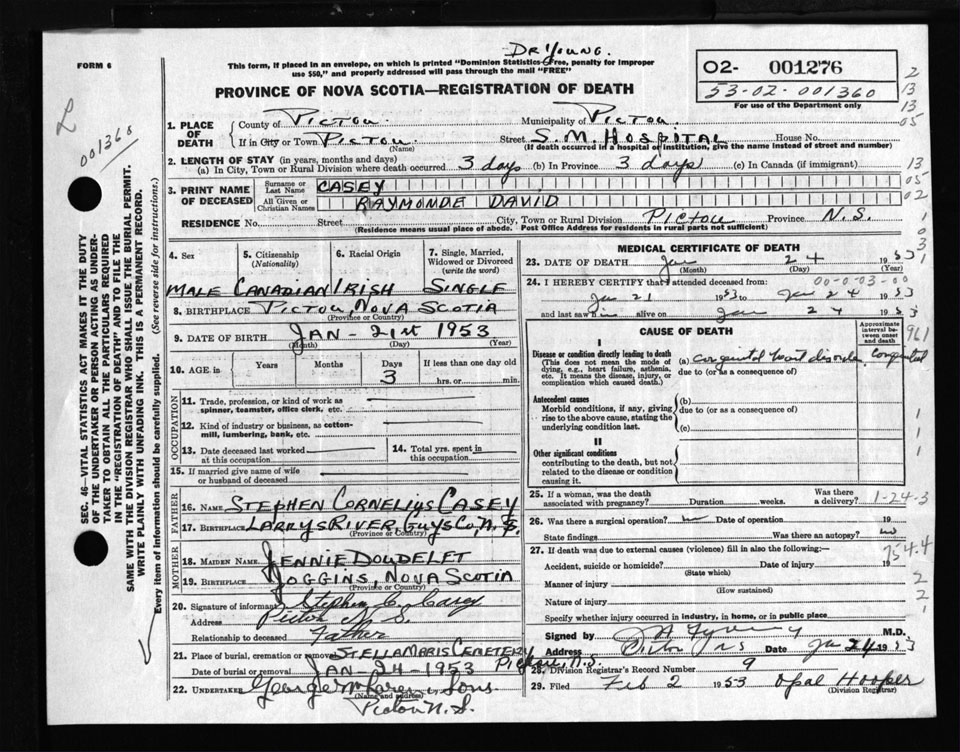 DR YOUNG.
FORM 6
This form, if placed in an envelope, on which is printed "Dominion Statistics-Free, penalty for improper
use $50," and properly addressed will pass through the mail "FREE"
02- 001276
53-02-001360
For use of the Department only
PROVINCE OF NOVA SCOTIA—REGISTRATION OF DEATH
001360
1. PLACE OF DEATH
County of PICTOU Municipality of PICTOU
If in City or Town PICTOU (Name) Street S.M. HOSPITAL House No.
(If death occurred in a hospital or institution, give the name instead of street and number)
2. LENGTH OF STAY (in years, months and days)
(a) In City, Town or Rural Division where death occurred 3 days (b) In Province 3 days (c) In Canada (if immigrant)
3. PRINT NAME OF DECEASED
Surname or Last Name CASEY
All Given or Christian Names RAYMONDE DAVID
RESIDENCE No. Street City, Town or Rural Division PICTOU Province N.S.
(Residence means usual place of abode. Post Office Address for residents in rural parts not sufficient)
4. Sex 5. Citizenship (Nationality) 6. Racial Origin 7. Single, Married, Widowed or Divorced (write the word)
MALE CANADIAN IRISH SINGLE
8. BIRTHPLACE PICTOU, NOVA SCOTIA
(Province or Country)
9. DATE OF BIRTH JAN - 21st 1953
(Month) (Day) (Year)
10. AGE in Years Months Days 3 If less than one day old hrs. or min.
OCCUPATION
11. Trade, profession, or kind of work as spinner, teamster, office clerk, etc.
12. Kind of industry or business, as cotton-mill, lumbering, bank, etc.
13. Date deceased last worked at this occupation
14. Total yrs. spent in this occupation
15. If married give name of wife or husband of deceased
FATHER
16. NAME STEPHEN CORNELIUS CASEY
17. BIRTHPLACE LARRYS RIVER, GUYS CO, N.S.
(Province or Country)
MOTHER
18. MAIDEN NAME JENNIE DOUDELET
19. BIRTHPLACE JOGGINS, NOVA SCOTIA
(Province or Country)
20. Signature of informant Stephen C. Casey
Address Pictou N.S.
Relationship to deceased Father
21. Place of burial, cremation or removal STELLA MARIS CEMETERY Pictou, N.S.
Date of burial or removal JAN-24-1953
22. UNDERTAKER George McLaren & Sons
(Name and address)
Pictou N.S.
MEDICAL CERTIFICATE OF DEATH
23. DATE OF DEATH Jan 24 1953
(Month) (Day) (Year)
24. I HEREBY CERTIFY that I attended deceased from: 00-0-03-00
Jan 21 1953 to Jan 24 1953
and last saw him alive on Jan 24 1953
CAUSE OF DEATH
Approximate interval between onset and death
I
Disease or condition directly leading to death (a) congenital heart disorder congenital
(This does not mean the mode of dying, e.g., heart failure, asthenia, etc. It means the disease, injury, or complication which caused death.)
due to (or as a consequence of)
Antecedent causes (b)
Morbid conditions, if any, giving rise to the above cause, stating the underlying condition last.
due to (or as a consequence of)
(c)
II
Other significant conditions
contributing to the death, but not related to the disease or condition causing it.
25. If a woman, was the death associated with pregnancy? Duration weeks. Was there a delivery? 1-24-3
26. Was there a surgical operation? no Date of operation 19
State findings Was there an autopsy? no
27. If death was due to external causes (violence) fill in also the following:— 754.4
Accident, suicide or homicide? Date of injury 19
(State which)
Manner of injury
(How sustained)
Nature of injury
Specify whether injury occurred in industry, in home, or in public place
Signed by M.D.
Address Pictou NS Date Jan 24 1953
28. Division Registrar's Record Number 9
29. Filed Feb 2 1953 Opal Hooper
(Division Registrar)
SEC. 46—VITAL STATISTICS ACT MAKES IT THE DUTY
OF THE UNDERTAKER OR PERSON ACTING AS UNDER-
TAKER TO OBTAIN ALL THE PARTICULARS REQUIRED
IN THE "REGISTRATION OF DEATH" AND TO FILE THE
SAME WITH THE DIVISION REGISTRAR WHO SHALL ISSUE THE BURIAL PERMIT.
WRITE PLAINLY WITH UNFADING INK. THIS IS A PERMANENT RECORD.
Every item of information should be carefully supplied. (See reverse side for instructions.)
2
13
13
05
13
05
02
1
0
3
1
961
1
1
1
2
2
1